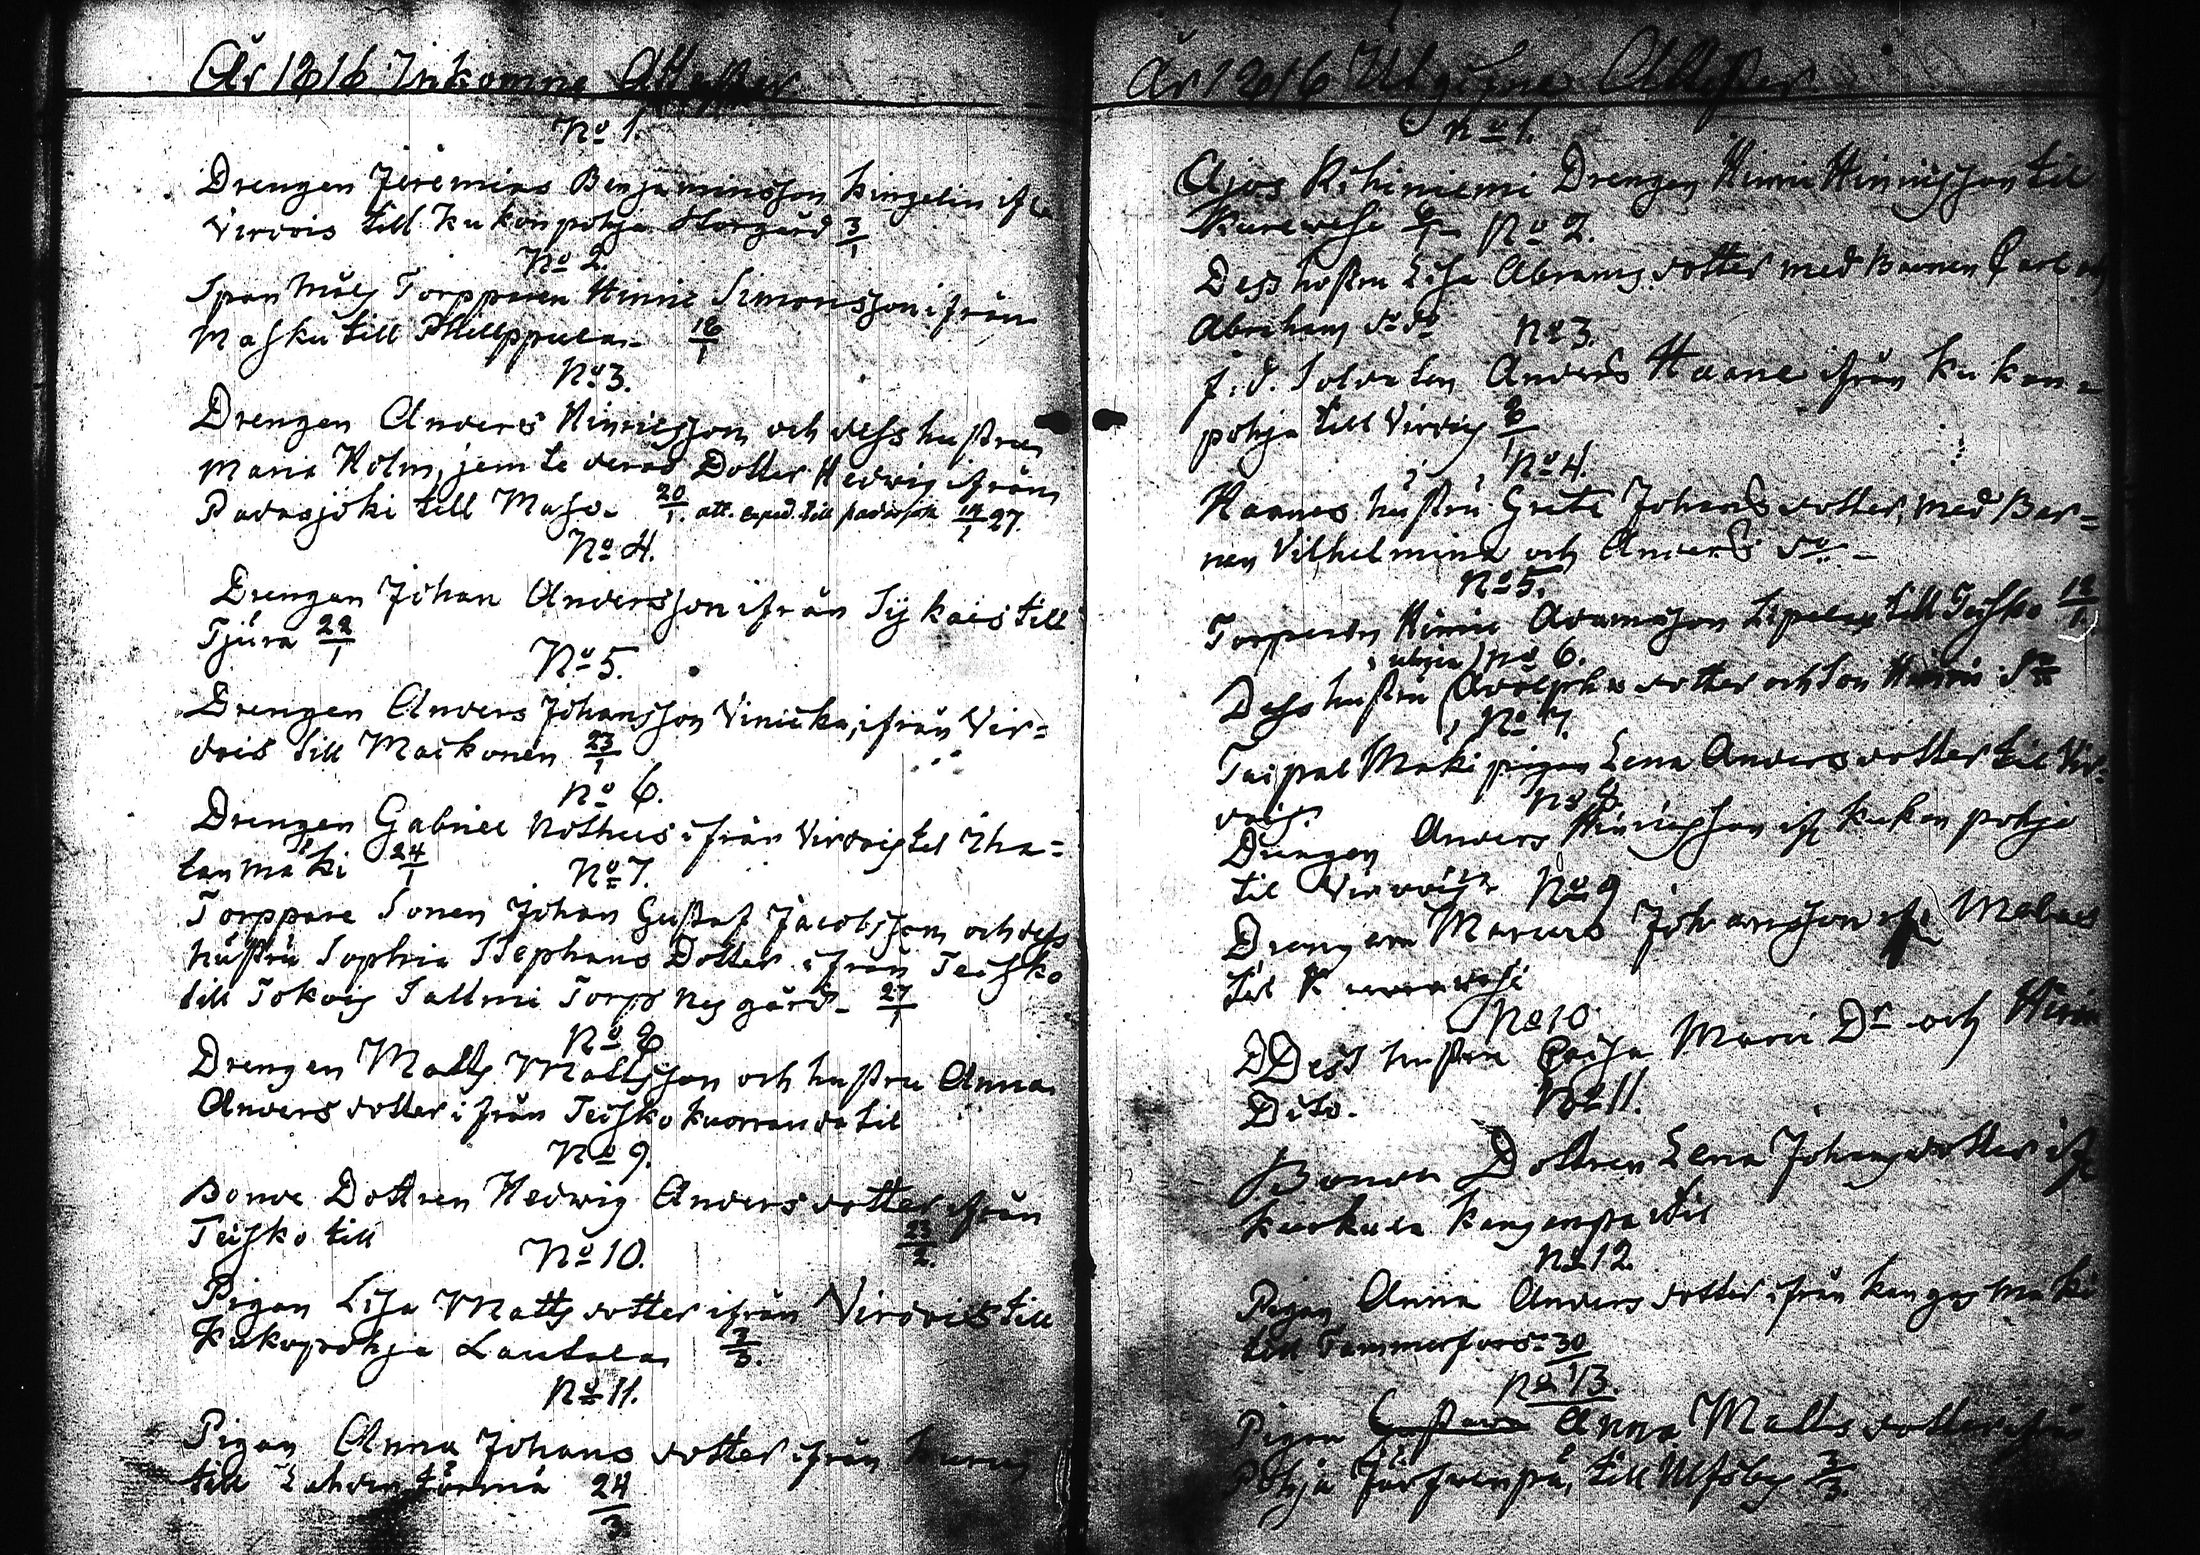 År 1816 Inkomne Attester
No 1.
Drengen Jeremias Benjaminsson Kingelin ifr
Virdois till Kukonpohja Storgård 3/1
No 2.
Spanmåls Torpparen Hinric Simonsson ifrån
Masku till Phillppula 18/1
No 3.
Drengen Anders Hinricsson och dess hustru
Maria Holm, jemte deras Dotter Hedvig ifrån
Padasjoki till Maso. 20/1. att. exped. till padasjoki 14/1 27.
No 4.
Drengen Johan Andersson ifrån Tÿkois till
Tjura 22/1
No 5.
Drengen Anders Johansson Vinicka, ifrån Vir=
dois till Maikonen 23/1
No 6.
Drengen Gabriel Nothus ifrån Virdois tel Iha=
lanmäki 24/1
No 7.
Torppare Sonen Johan Gustaf Jacobsson och dess
hustru Sophia Stephans Dotter ifrån Teisko
till Tokois Sallmi Torp Nygård 27/1
No 8
Drengen Matts Mattsson och hustru Anna
Anders dotter ifrån Teisko Kuorranda til
No 9.
Bonde Dottren Hedvig Anders dotter ifrån
Teisko till 23/2.
No 10.
Pigan Lisa Matts dotter ifrån Virdois till
Kukopohja Lautala 3/3.
No 11.
Pigan Anna Johans dotter ifrån Kuru
till Lahdentörmä 24/3
År 1816 Utgifne Attester
No 1.
Ajos Rihiniemi Drengen Hinric Hinricsson til
Kurewesi
No 2.
Dess hustru Lisa Abrams dotter med Barnen Carl och
Abraham do do
No 3.
f. d. Soldaten Anders Haane ifrån Kukon=
pohja till Virdois 8/1
No 4.
Haanes hustru Greta Johans dotter, med Bar=
nen Vilhelmina och Anders do
No 5.
Torparen Hinric Adamsson Lepola till Teisko 12/1
No 6.
Dess hustru Adolphs dotter och Son Hinric do
No 7.
Taipal Maki pigan Lena Anders dotter til Vir=
dois.
No 8.
Drengen Anders Hinricsson ifr Kukonpohja
til Virdois
No 9
Drengen Marcus Johansson ifr
til
No 10
Dess hustru Caisa Maria Dr och
Dito.
No 11.
Bonde Dottren Lena Johans dotter ifr
til
No 12.
Pigan Anna Anders dotter ifrån Kangas Maki
till Tammerfors 30/1
No 13.
Pigan Anna Matts dotter ifrån
Pohja Järfwenpä, till Ulfsby 3/3.